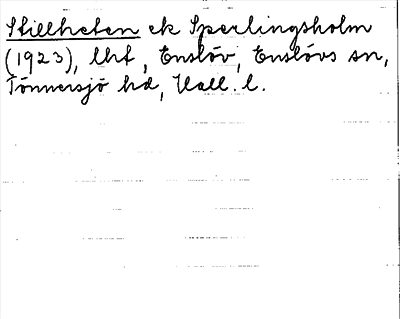 Stillheten ek Sperlingsholm
(1923), lht, Enslöv, Enslövs sn,
Tönnersjö hd, Hall. l.